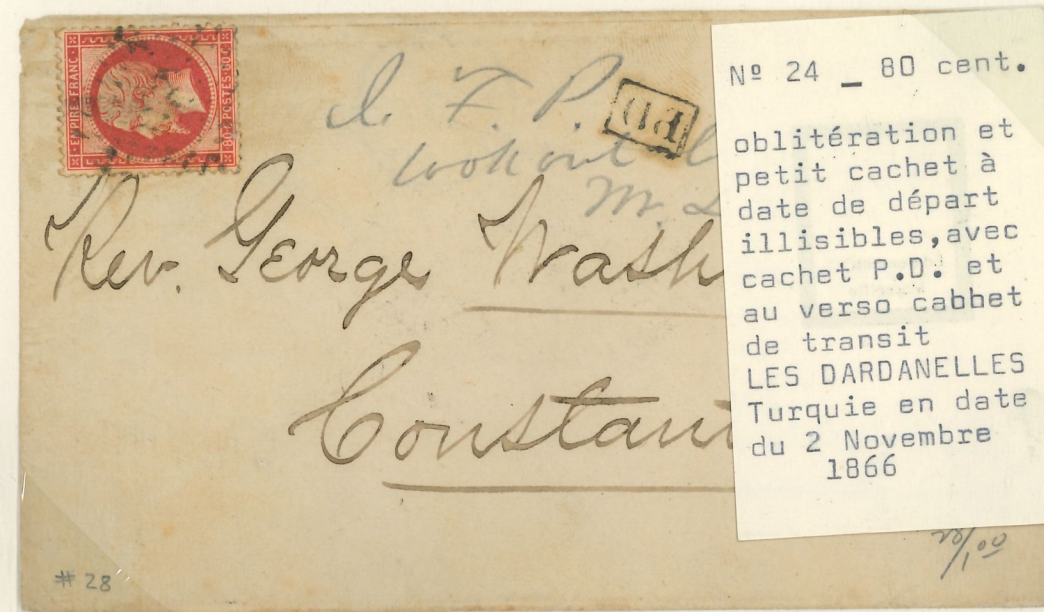 EMPIRE FRANC
80 C POSTES 80 C
PD
I. F. P.
lookout
M.
Rev. George Wash
Constant
# 28
Nº 24 _ 80 cent.
oblitération et
petit cachet à
date de départ
illisibles,avec
cachet P.D. et
au verso cabhet
de transit
LES DARDANELLES
Turquie en date
du 2 Novembre
1866